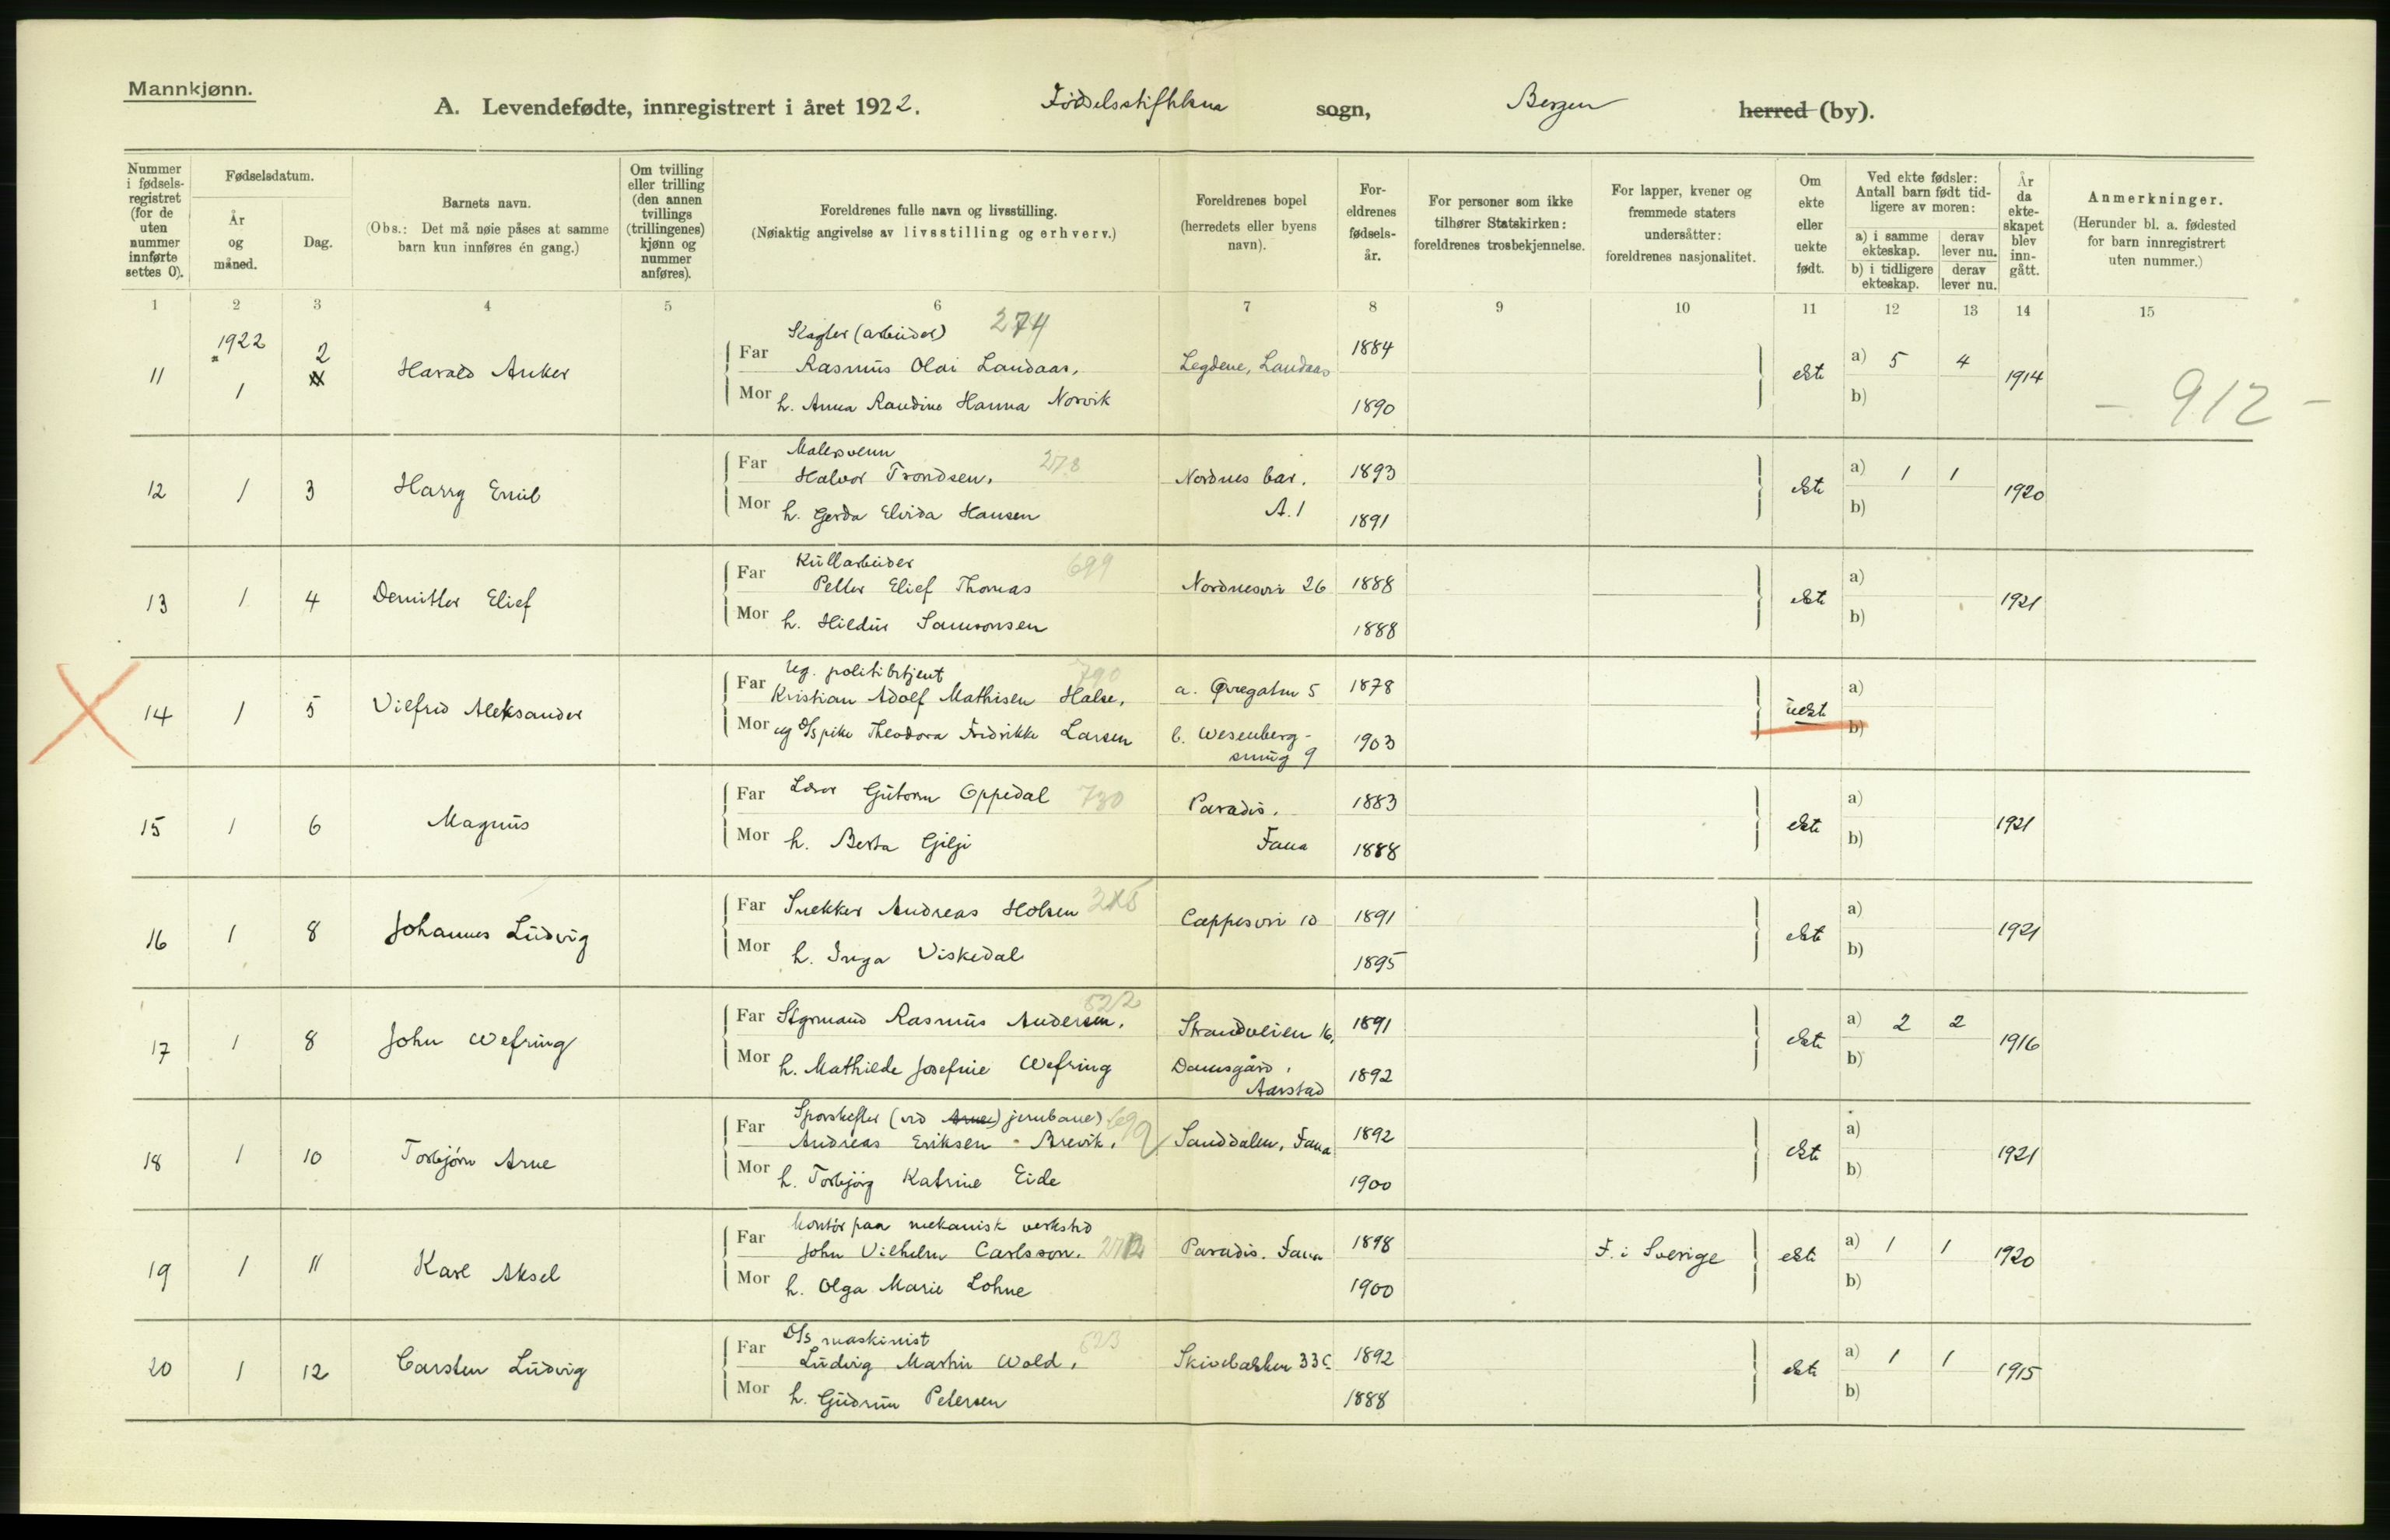 Mannkjønn.
A. Levendefødte, innregistrert i året 1922. Fødselsstiftelsens sogn, Bergen herred (by).
Nummer i fødsels-registret (for de uten nummer innførte settes 0).
Fødselsdatum.
År og måned.
Dag.
Barnets navn.
(Obs.: Det må nøie påses at samme barn kun innføres én gang.)
Om tvilling eller trilling (den annen tvillings (trillingenes) kjønn og nummer anføres).
Foreldrenes fulle navn og livsstilling.
(Nøiaktig angivelse av livsstilling og erhverv.)
Foreldrenes bopel (herredets eller byens navn).
For-eldrenes fødsels-år.
For personer som ikke tilhører Statskirken: foreldrenes trosbekjennelse.
For lapper, kvener og fremmede staters undersåtter: foreldrenes nasjonalitet.
Om ekte eller uekte født.
Ved ekte fødsler: Antall barn født tid-ligere av moren:
a) i samme ekteskap.
derav lever nu.
b) i tidligere ekteskap.
derav lever nu.
År da ekte-skapet blev inn-gått.
Anmerkninger.
(Herunder bl. a. fødested for barn innregistrert uten nummer.)
1 2 3 4 5 6 7 8 9 10 11 12 13 14 15
1922
11 1 2 Harald Anker
(arbeider) 274
Far Rasmus Olai Landaas, Legdene, Landaas 1884
Mor h. Anna Randine Hanna Norvik 1890
ekte a) 5 4 b) 1914
- 912 -
12 1 3 Harry Emil
Malersvenn 278
Far Halvor Trondsen, Nordnes bar. A.1 1893
Mor h. Gerda Elvida Hansen 1891
ekte a) 1 1 b) 1920
13 1 4 Elief
Kullarbeider 699
Far Petter Elief Thomas Nordnesvei 26 1888
Mor h. Hildur Samsonsen 1888
ekte a) b) 1921
14 1 5 Vilfrid Aleksander
ug. politibetjent 790
Far Kristian Adolf Mathisen Halse, a. Øvregaten 5 1878
Mor ug D/s pike Theodora Fredrikke Larsen b. Wesenberg-smug 9 1903
uekte a) b)
15 1 6 Magnus
Far Lærer Gutorm Oppedal 730 Paradis. Fana 1883
Mor h. Berta Gilje 1888
ekte a) b) 1921
16 1 8 Johannes Ludvig
Far Snekker Andreas Holsen Cappesvei 10 1891
Mor h. Inga Viskedal 1895
ekte a) b) 1921
17 1 8 John Wefring
Far Styrmand Rasmus Andersen, 522 Strandveien 16, Damsgård, Aarstad 1891
Mor h. Mathilde Josefine Wefring 1892
ekte a) 2 2 b) 1916
18 1 10 Torbjørn Arne
(ved Arne) jernbane) 699
Far Andreas Eriksen - Brevik, Sanddalen, Fana 1892
Mor h. Torbjørg Katrine Eide 1900
ekte a) b) 1921
19 1 11 Karl Aksel
Montør paa mekanisk verksted
Far John Vilhelm Carlsson. Paradis. Fana 1898
Mor h. Olga Marie Lohne 1900
F. i Sverige ekte a) 1 1 b) 1920
20 1 12 Carsten Ludvig
D/s maskinist 523
Far Ludvig Martin Wold, Skivebakken 33c 1892
Mor h. Gudrun Petersen 1888
ekte a) 1 1 b) 1915